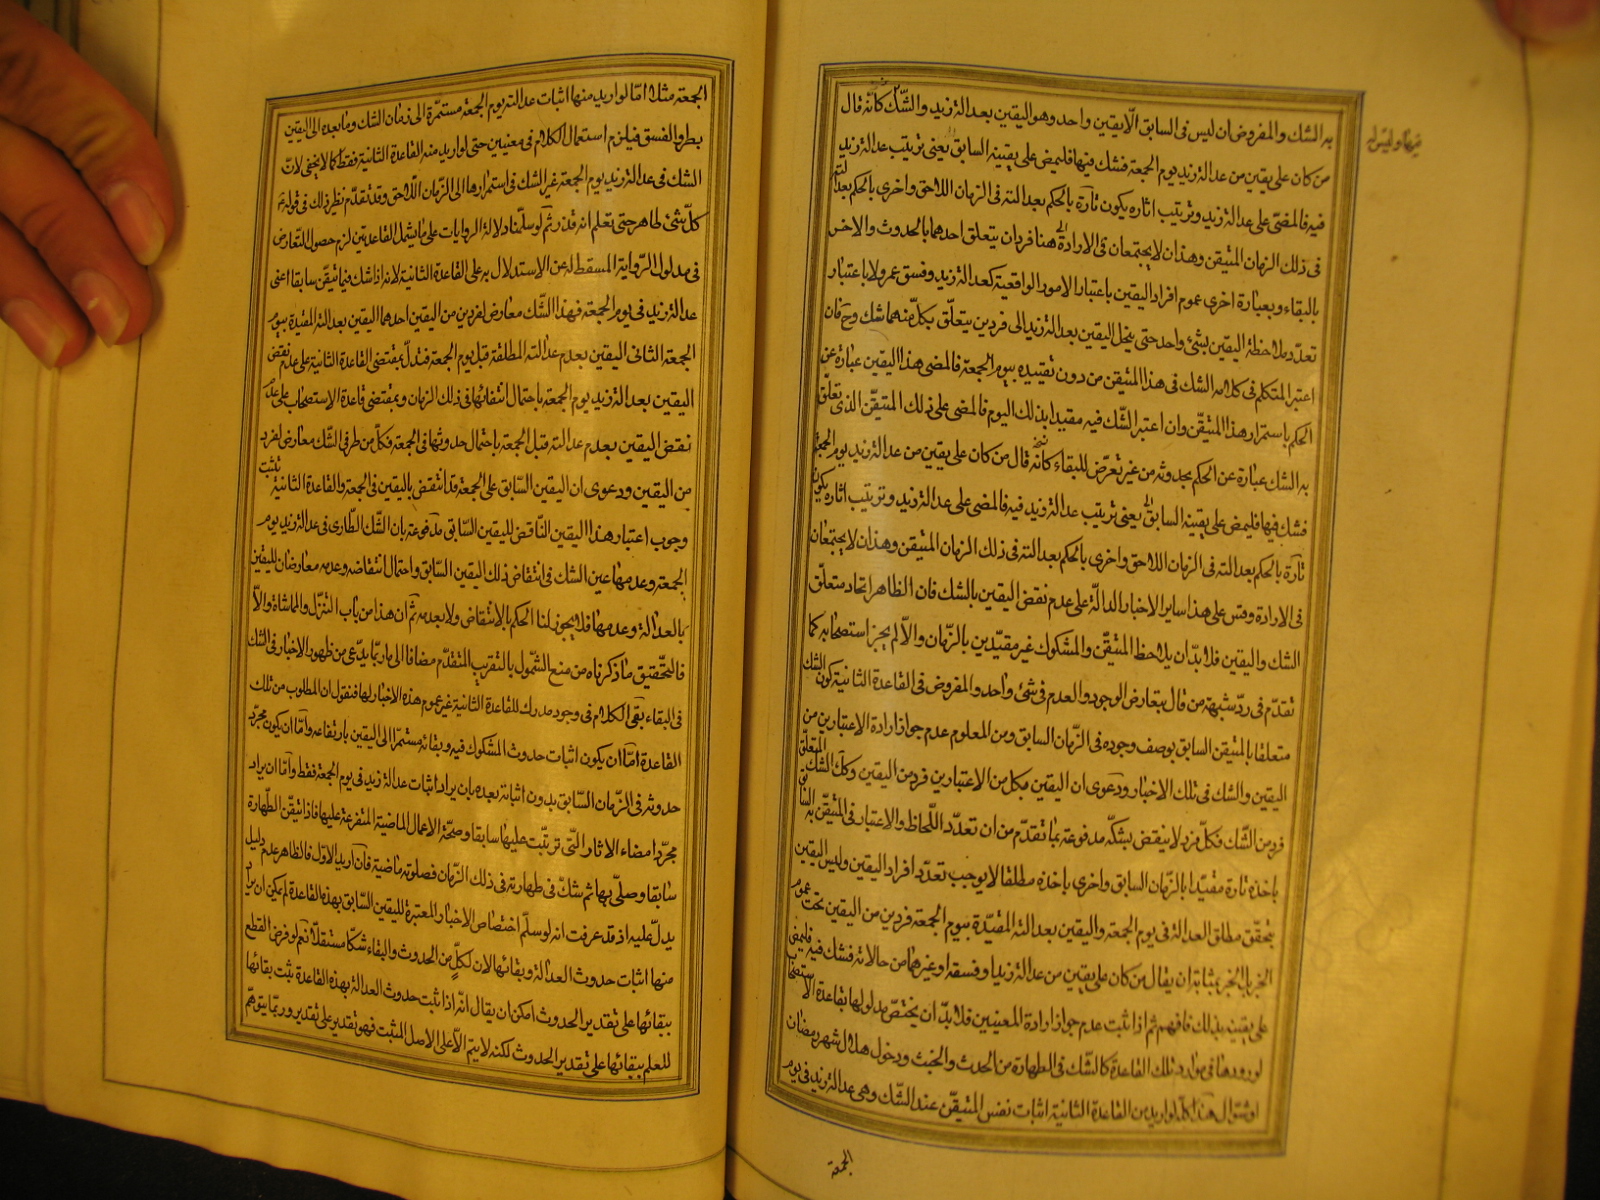 به الشك والمفروض ان ليس فى السابق الّا يقين واحد وهو اليقين بعدالة زيد والشّك كانّه قال
من كان على يقين من عدالة زيد يوم الجمعة فشك فيها فليمض على يقينه السابق يعنى ترتيب عدالة زيد
فيه فالمضىّ على عدالة زيد وترتيب اثاره يكون تارة بالحكم بعدالته فى الزمان اللاحق واخرى بالحكم بعدالته
فى ذلك الزمان المتيقن وهذان لا يجتمعان فى الارادة هنا فردان يتعلق احدهما بالحدوث والاخر
بالبقاء وبعبارة اخرى عموم افراد اليقين باعتبار الامور الواقعية كعدالة زيد وفسق عمرو لا باعتبار
تعدّد ملاحظة اليقين بشئ واحد حتى ينحل اليقين بعدالة زيد الى فردين يتعلّق بكلّ منهما شك وح فان
اعتبر المتكلم فى كلامه الشك فى هذا المتيقن من دون تقييده بيوم الجمعة فالمضى هذا اليقين عبارة عن
الحكم باستمرار هذا المتيقّن وان اعتبر الشّك فيه مقيدا بذلك اليوم فالمضى على ذلك المتيقّن الذى تعلّق
به الشك عبارة عن الحكم بحدوثه من غير تعرّض للبقاء كانّه قال من كان على يقين من عدالة زيد يوم الجمعة
فشك فيها فليمض على يقينه السابق يعنى ترتيب عدالة زيد فيه فالمضى على عدالة زيد وترتيب اثاره يكون
تارة بالحكم بعدالته فى الزمان اللاحق واخرى بالحكم بعدالته فى ذلك الزمان المتيقن وهذان لا يجتمعان
فى الارادة وقس على هذا ساير الاخبار الدالّة على عدم نقض اليقين بالشك فان الظاهر اتحاد متعلّق
الشك واليقين فلا بدّ ان يلاحظ المتيقّن والمشكوك غير مقيّدين بالزّمان والّا لم يجز استصحابه كما
تقدّم فى ردّ شبهة من قال بتعارض الوجود والعدم فى شئ واحد والمفروض فى القاعدة الثانية كون الشك
متعلقا بالمتيقن السابق بوصف وجوده فى الزّمان السابق ومن المعلوم عدم جواز ارادة الاعتبارين من
اليقين والشك فى تلك الاخبار ودعوى ان اليقين بكل من الاعتبارين فرد من اليقين وكك الشك المتعلّق
فرد من الشّك فكلّ فرد لا ينقض بشكّه مدفوعة بما تقدّم من ان تعدّد اللّحاظ والاعتبار فى المتيقّن به
باخذه تارة مقيّدا بالزّمان السابق واخرى باخذه مطلقا لا يوجب تعدّد افراد اليقين وليس اليقين
بتحقّق مطلق العدالة فى يوم الجمعة واليقين بعدالته المقيّدة بيوم الجمعة فردين من اليقين تحت عموم
الخبر بل الخبر بمثابة ان يقال من كان على يقين من عدالة زيد او فسقه او غيرهما من حالاته فشك فيه فليمض
على يقينه بذلك فافهم ثم اذا ثبت عدم جواز ارادة المعنيين فلا بدّ ان يختصّ مدلولها بقاعدة الاستصحاب
لورودها فى موارد تلك القاعدة كالشّك فى الطهارة من الحدث والخبث ودخول هلال شهر رمضان
او شوّال هذا كلّه لو اريد من القاعدة الثانية اثبات نفس المتيقّن عند الشّك وهى عدالة زيد فى يوم
الجمعة
الجمعة مثلا امّا لو اريد منها اثبات عدالته يوم الجمعة مستمرّة الى زمان الشك وما بعده الى اليقين
بطروالفسق فيلزم استعمال الكلام فى معنيين حتى لو اريد منه القاعدة الثانية فقط كما لا يخفى لانّ
الشك فى عدالة زيد يوم الجمعة غير الشك فى استمرارها الى الزّمان اللّاحق وقد تقدّم نظير ذلك فى قوله ع
كلّ شئ طاهر حتى تعلم انه قذر ثم لو سلّمنا دلالة الروايات على ما يشمل القاعدتين لزم حصول التّعارض
فى مدلول الرّواية المسقط له عن الاستدلال به على القاعدة الثانية لانه اذا شك فيما تيقّن سابقا اعنى
عدالة زيد فى يوم الجمعة فهذا الشّك معارض لفردين من اليقين احدهما اليقين بعدالته المقيّدة بيوم
الجمعة الثانى اليقين بعدم عدالته المطلقة قبل يوم الجمعة فتدلّ بمقتضى القاعدة الثانية على عدم نقض
اليقين بعدالة زيد يوم الجمعة باحتمال انتفائها فى ذلك الزمان وبمقتضى قاعدة الاستصحاب على عدم
نقض اليقين بعدم عدالته قبل الجمعة باحتمال حدوثها فى الجمعة فكلّ من طرفى الشّك معارض لفرد
من اليقين ودعوى ان اليقين السّابق على الجمعة قد انتقض باليقين فى الجمعة والقاعدة الثانية تثبت
وجوب اعتبار هذا اليقين النّاقض لليقين السّابق مدفوعة بان الشّك الطّارى فى عدالة زيد يوم
الجمعة وعدمها عين الشك فى انتقاض ذلك اليقين السّابق واحتمال انتقاضه وعدمه معارضان لليقين
بالعدالة وعدمها فلا يجوز لنا الحكم بالانتقاض ولا بعدمه ثم ان هذا من باب التنزّل والمماشاة والّا
فالتّحقيق ما ذكرناه من منع الشّمول بالتقريب المتقدّم مضافا الى ما ربّما يدّعى من ظهور الاخبار فى الشك
فى البقاء بقى الكلام فى وجود مدرك للقاعدة الثانية غير عموم هذه الاخبار لها فنقول ان المطلوب من تلك
القاعدة امّا ان يكون اثبات حدوث المشكوك فيه وبقائه مستمرّا الى اليقين بارتفاعه وامّا ان يكون مجرّد
حدوثه فى الزّمان السّابق بدون اثباته بعده بان يراد اثبات عدالة زيد فى يوم الجمعة فقط وامّا ان يراد
مجرّد امضاء الاثار التّى ترتّبت عليها سابقا وصحّة الاعمال الماضية المتفرعة عليها فاذا تيقّن الطّهارة
سابقا وصلّى بها ثم شكّ فى طهارته فى ذلك الزّمان فصلوته ماضية فان اريد الاوّل فالظاهر عدم دليل
يدلّ عليه اذ قد عرفت انه لو سلّم اختصاص الاخبار المعتبرة لليقين السّابق بهذه القاعدة لم يمكن ان يراد
منها اثبات حدوث العدالة وبقائها لان لكلّ من الحدوث والبقاء شكّا مستقلّا نعم لو فرض القطع
ببقائها على تقدير الحدوث امكن ان يقال انّه اذا ثبت حدوث العدالة بهذه القاعدة ثبت بقائها
للعلم ببقائها على تقدير الحدوث لكنه لا يتم الّا على الاصل المثبت فهو تقدير على تقدير وربّما يتوهّم